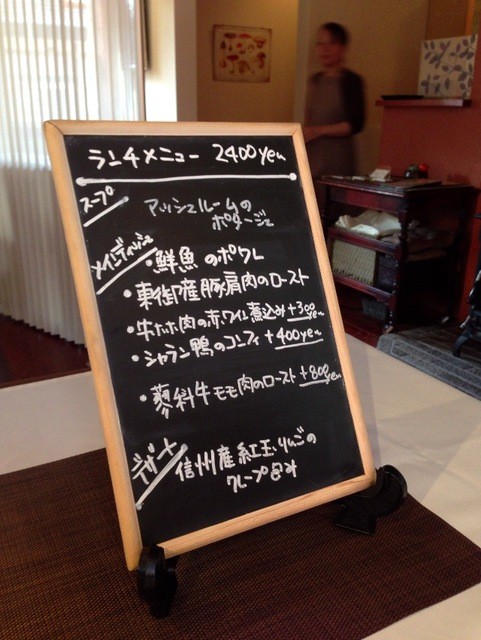 ランチメニュー 2400yen
スープ
マッシュルームの
ポタージュ
メインディッシュ
・鮮魚のポワレ
・東御産豚肩肉のロースト
・牛ホホ肉の赤ワイン煮込み+300yen
・シャラン鴨のコンフィ+400yen
・蓼科牛モモ肉のロースト+800yen
デザート
信州産紅玉りんごの
クレープ包み